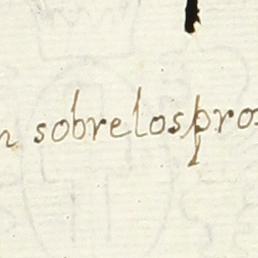 n sobrelospros